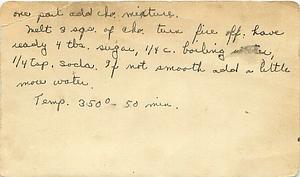 one part add cho. mixture.
Melt 3 sqs. of cho. turn fire off. have
ready 4 tbs. sugar, 1/4 c. boiling water,
1/4 tsp. soda. If not smooth add a little
more water.
Temp. 350° - 50 min.